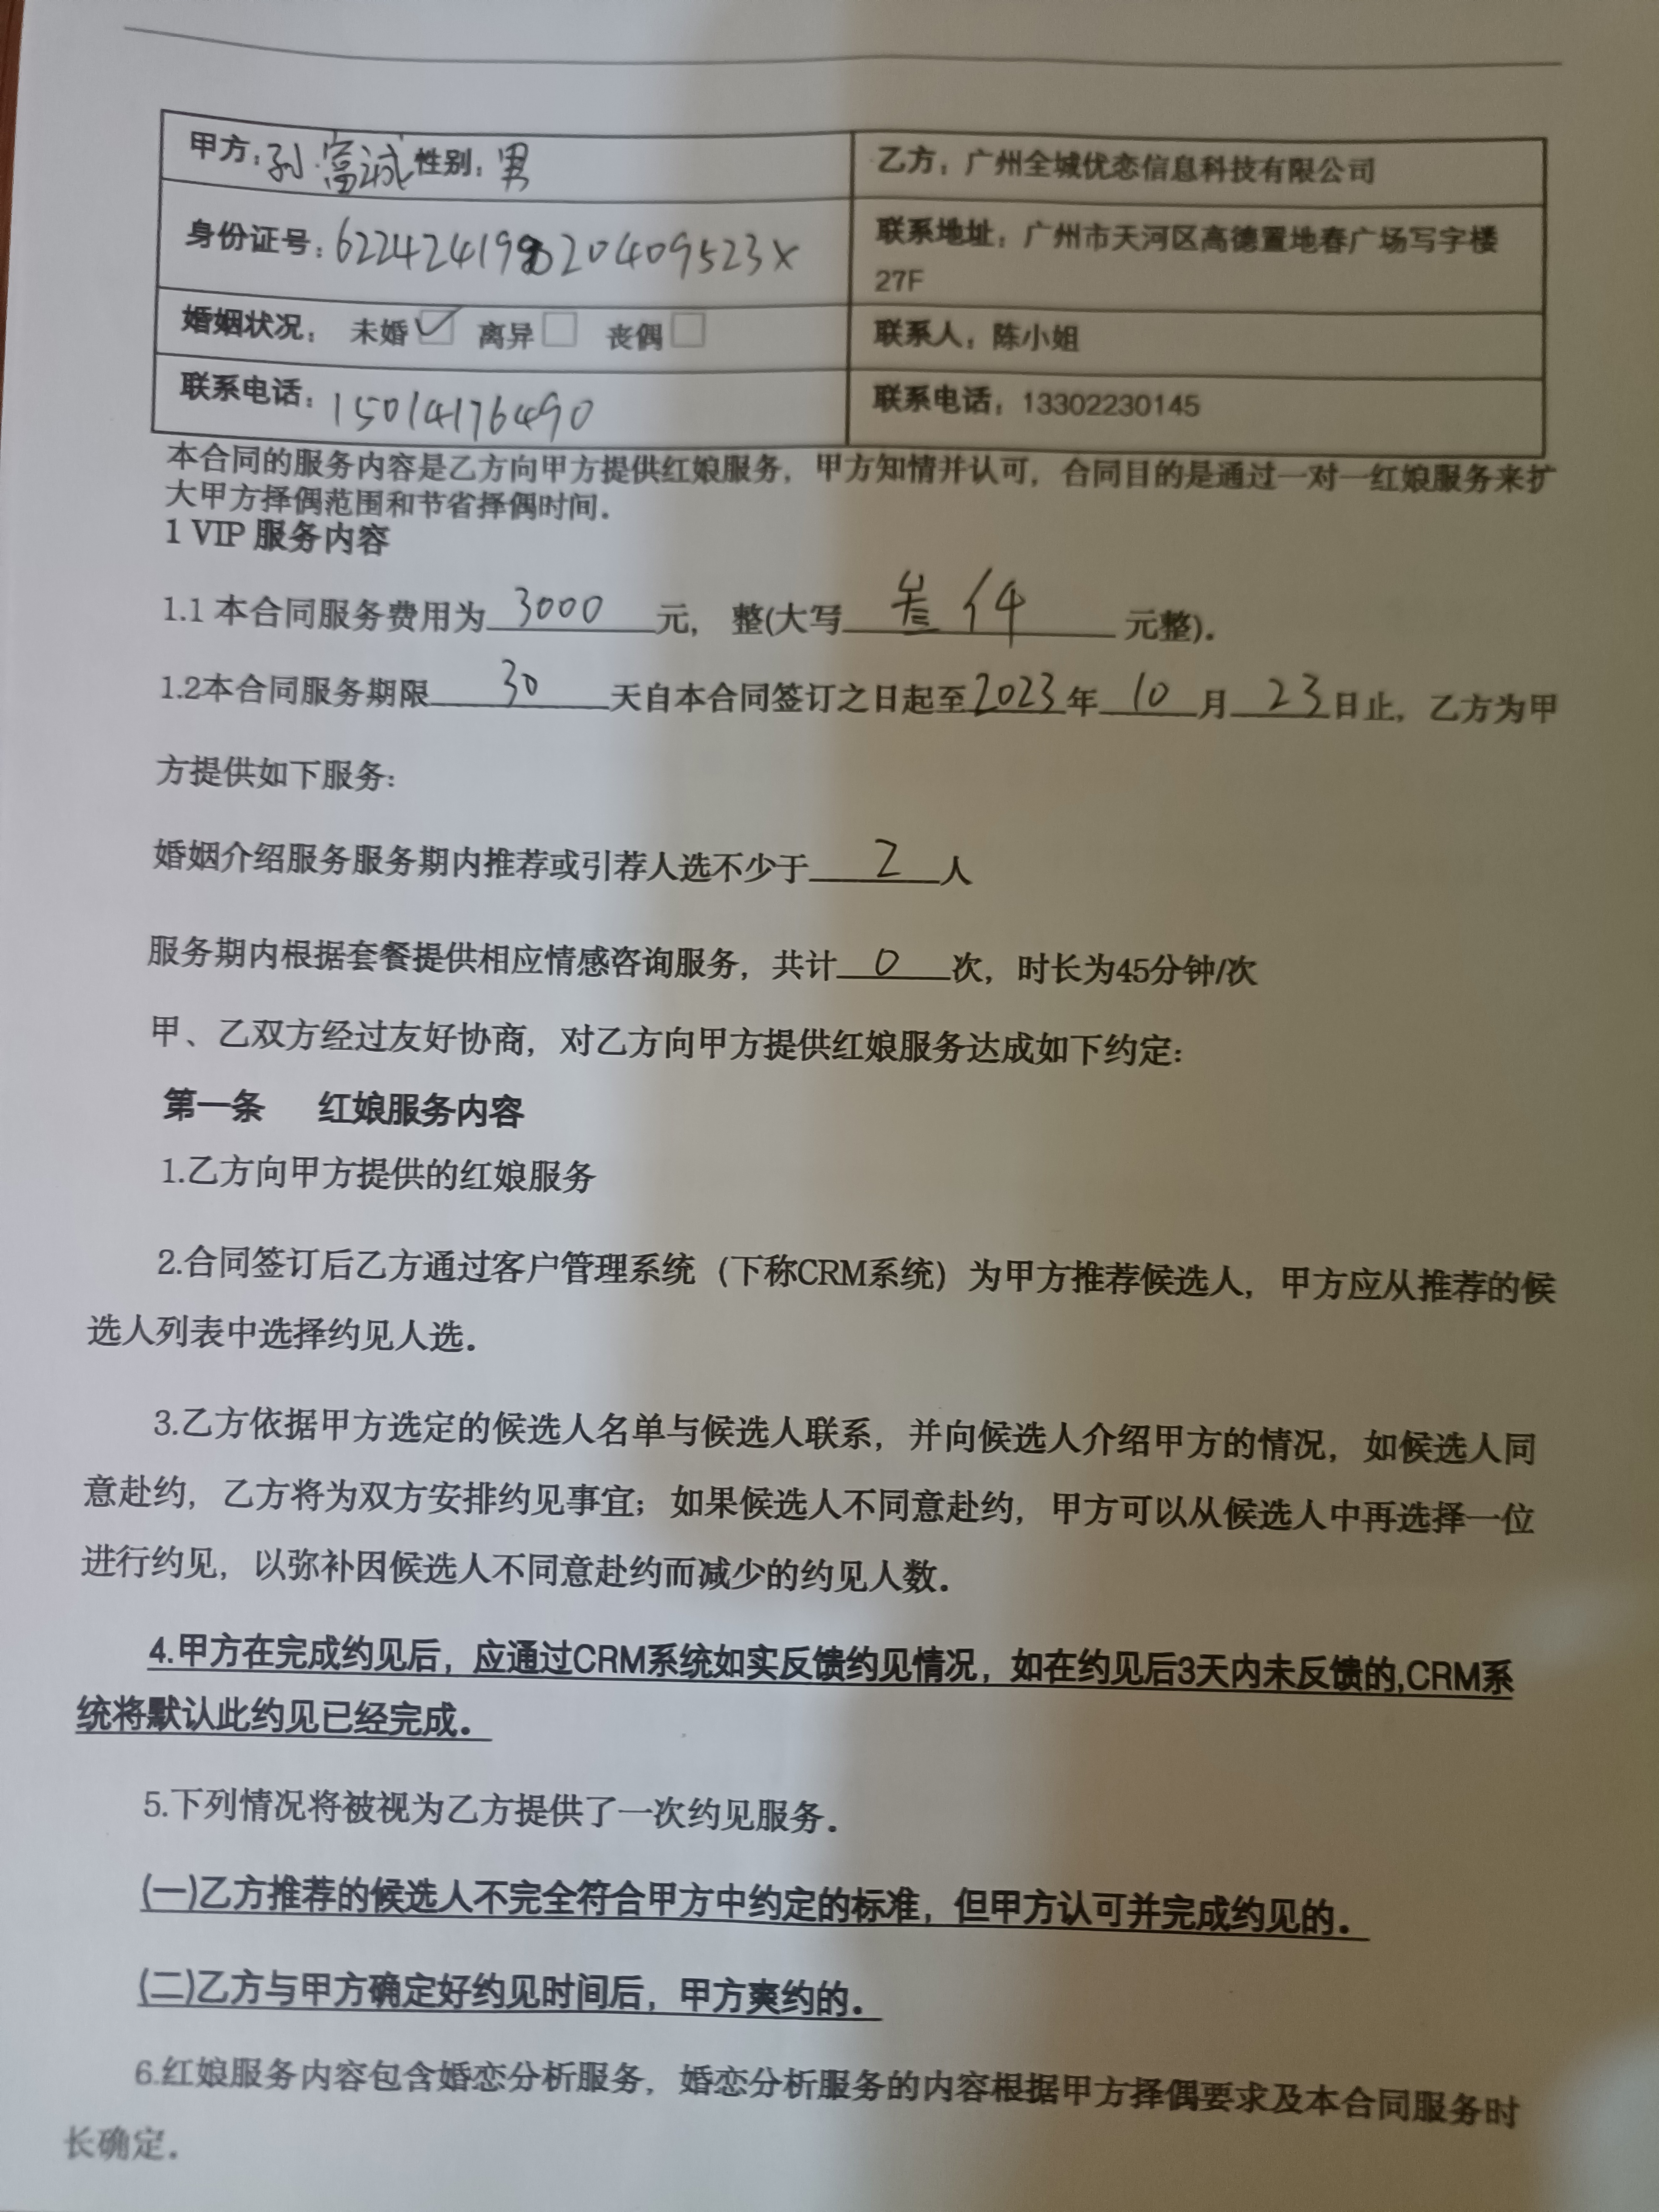 甲方：孙富诚 性别：男
乙方：广州全城优恋信息科技有限公司
身份证号：
联系地址：广州市天河区高德置地春广场写字楼
27F
婚姻状况： 未婚☑ 离异□ 丧偶□
联系人：陈小姐
联系电话：15014176490
联系电话：13302230145
本合同的服务内容是乙方向甲方提供红娘服务，甲方知情并认可，合同目的是通过一对一红娘服务来扩
大甲方择偶范围和节省择偶时间。
1 VIP 服务内容
1.1 本合同服务费用为 3000 元， 整(大写 元整)。
1.2本合同服务期限 30 天自本合同签订之日起至2023年 10 月 23 日止，乙方为甲
方提供如下服务：
婚姻介绍服务服务期内推荐或引荐人选不少于 2 人
服务期内根据套餐提供相应情感咨询服务，共计 0 次，时长为45分钟/次
甲、乙双方经过友好协商，对乙方向甲方提供红娘服务达成如下约定：
第一条 红娘服务内容
1.乙方向甲方提供的红娘服务
2.合同签订后乙方通过客户管理系统（下称CRM系统）为甲方推荐候选人，甲方应从推荐的候
选人列表中选择约见人选。
3.乙方依据甲方选定的候选人名单与候选人联系，并向候选人介绍甲方的情况，如候选人同
意赴约，乙方将为双方安排约见事宜；如果候选人不同意赴约，甲方可以从候选人中再选择一位
进行约见，以弥补因候选人不同意赴约而减少的约见人数。
4.甲方在完成约见后，应通过CRM系统如实反馈约见情况，如在约见后3天内未反馈的,CRM系
统将默认此约见已经完成。
5.下列情况将被视为乙方提供了一次约见服务。
(一)乙方推荐的候选人不完全符合甲方中约定的标准，但甲方认可并完成约见的。
(二)乙方与甲方确定好约见时间后，甲方爽约的。
6.红娘服务内容包含婚恋分析服务，婚恋分析服务的内容根据甲方择偶要求及本合同服务时
长确定。